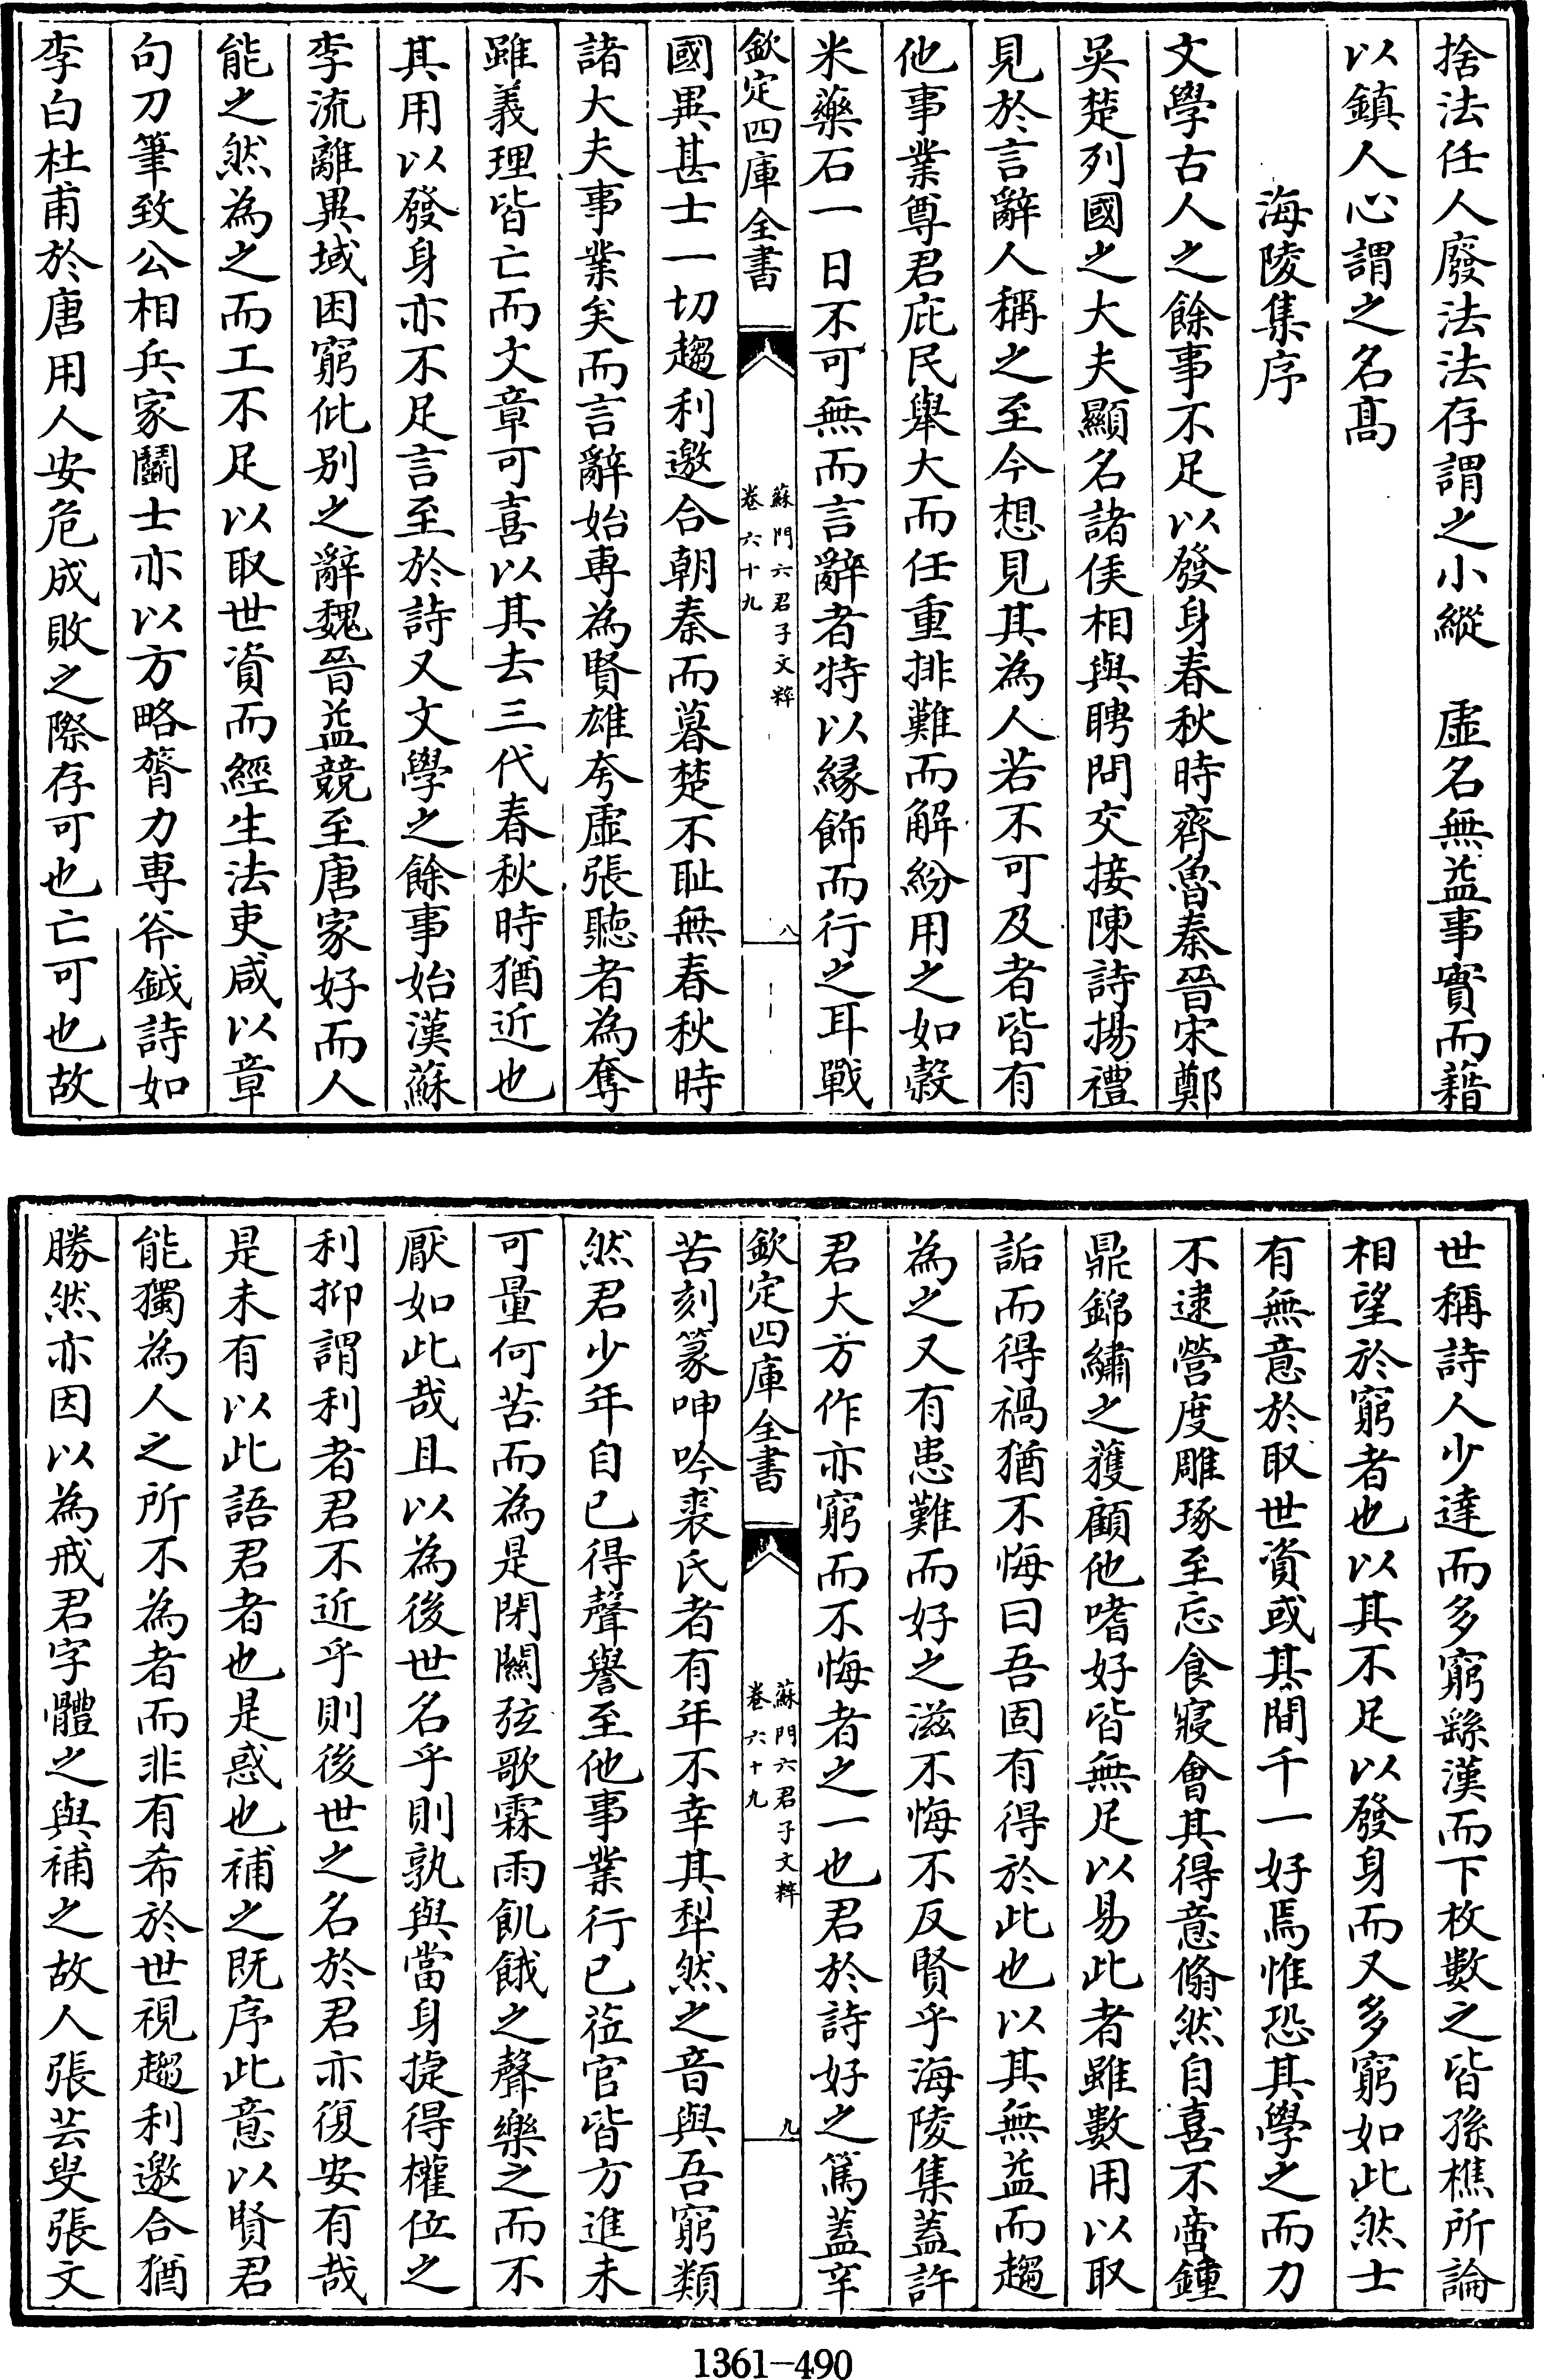 捨法任人廢法法存謂之小縱　虛名無益事實而藉
以鎮人心謂之名髙
海陵集序
文學古人之餘事不足以發身春秋時齊魯秦晉宋鄭
吳楚列國之大夫顯名諸侯相與聘問交接陳詩揚禮
見於言辭人稱之至今想見其為人若不可及者皆有
他事業尊君庇民舉大而任重排難而解紛用之如穀
米藥石一日不可無而言辭者特以縁飾而行之耳戰
欽定四庫全書
蘇門六君子文粹
卷六十九
八
國異甚士一切趨利邀合朝秦而暮楚不恥無春秋時
諸大夫事業矣而言辭始專為賢雄夸虛張聽者為奪
雖義理皆亡而文章可喜以其去三代春秋時猶近也
其用以發身亦不足言至於詩又文學之餘事始漢蘇
李流離異域困窮仳别之辭魏晉益競至唐家好而人
能之然為之而工不足以取世資而經生法吏咸以章
句刀筆致公相兵家鬭士亦以方略膂力専斧鉞詩如
李白杜甫於唐用人安危成敗之際存可也亡可也故
世稱詩人少達而多窮繇漢而下枚數之皆孫樵所論
相望於窮者也以其不足以發身而又多窮如此然士
有無意於取世資或其間千一好焉惟恐其學之而力
不逮營度雕琢至忘食寢會其得意翛然自喜不啻鍾
鼎錦繡之獲顧他嗜好皆無足以易此者雖數用以取
詬而得禍猶不悔曰吾固有得於此也以其無益而趨
為之又有患難而好之滋不悔不反賢乎海陵集蓋許
君大方作亦窮而不悔者之一也君於詩好之篤蓋辛
欽定四庫全書
蘇門六君子文粹
卷六十九
九
苦刻篆呻吟裘氏者有年不幸其犁然之音與吾窮類
然君少年自已得聲譽至他事業行已蒞官皆方進未
可量何苦而為是閉關弦歌霖雨飢餓之聲樂之而不
厭如此哉且以為後世名乎則孰與當身捷得權位之
利抑謂利者君不近乎則後世之名於君亦復安有哉
是未有以此語君者也是惑也補之既序此意以賢君
能獨為人之所不為者而非有希於世視趨利邀合猶
勝然亦因以為戒君字體之與補之故人張芸叟張文
1361-490